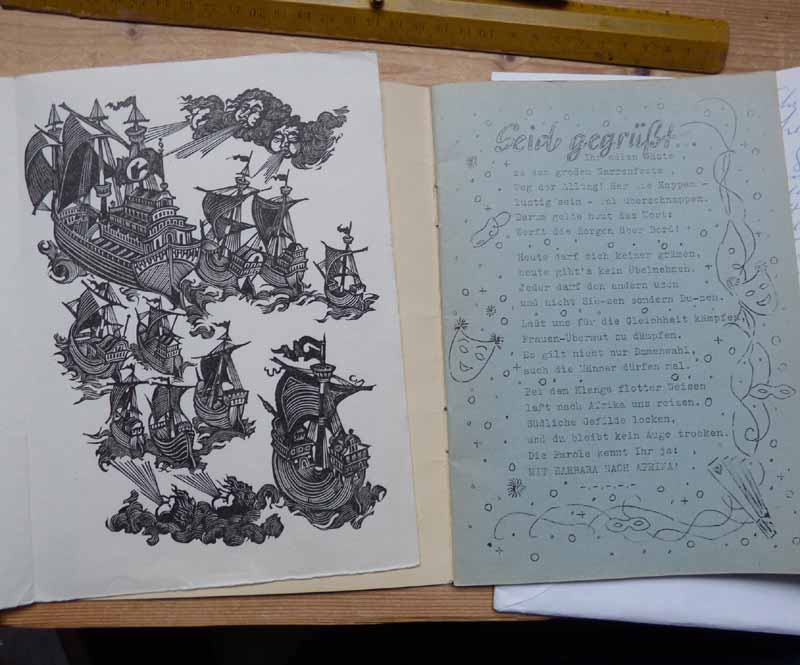 Seid gegrüßt
Ihr edlen Gäste
zu dem großen Narrenfeste
Weg der Alltag! Her die Kappen -
lustig sein - mal überschnappen.
Darum gelte heut das Wort:
Werft die Sorgen über Bord!
Heute darf sich keiner grämen,
heute gibt's kein Übelnehmen.
Jeder darf den andern uzen
und nicht Sie-zen sondern Du-zen.
Laßt uns für die Gleichheit kämpfen
Frauen-Übermut zu dämpfen.
Es gilt nicht nur Damenwahl,
auch die Männer dürfen mal.
Bei dem Klange flotter Weisen
laßt nach Afrika uns reisen.
Südliche Gefilde locken,
und da bleibt kein Auge trocken.
Die Parole kennt Ihr ja:
MIT BARBARA NACH AFRIKA!